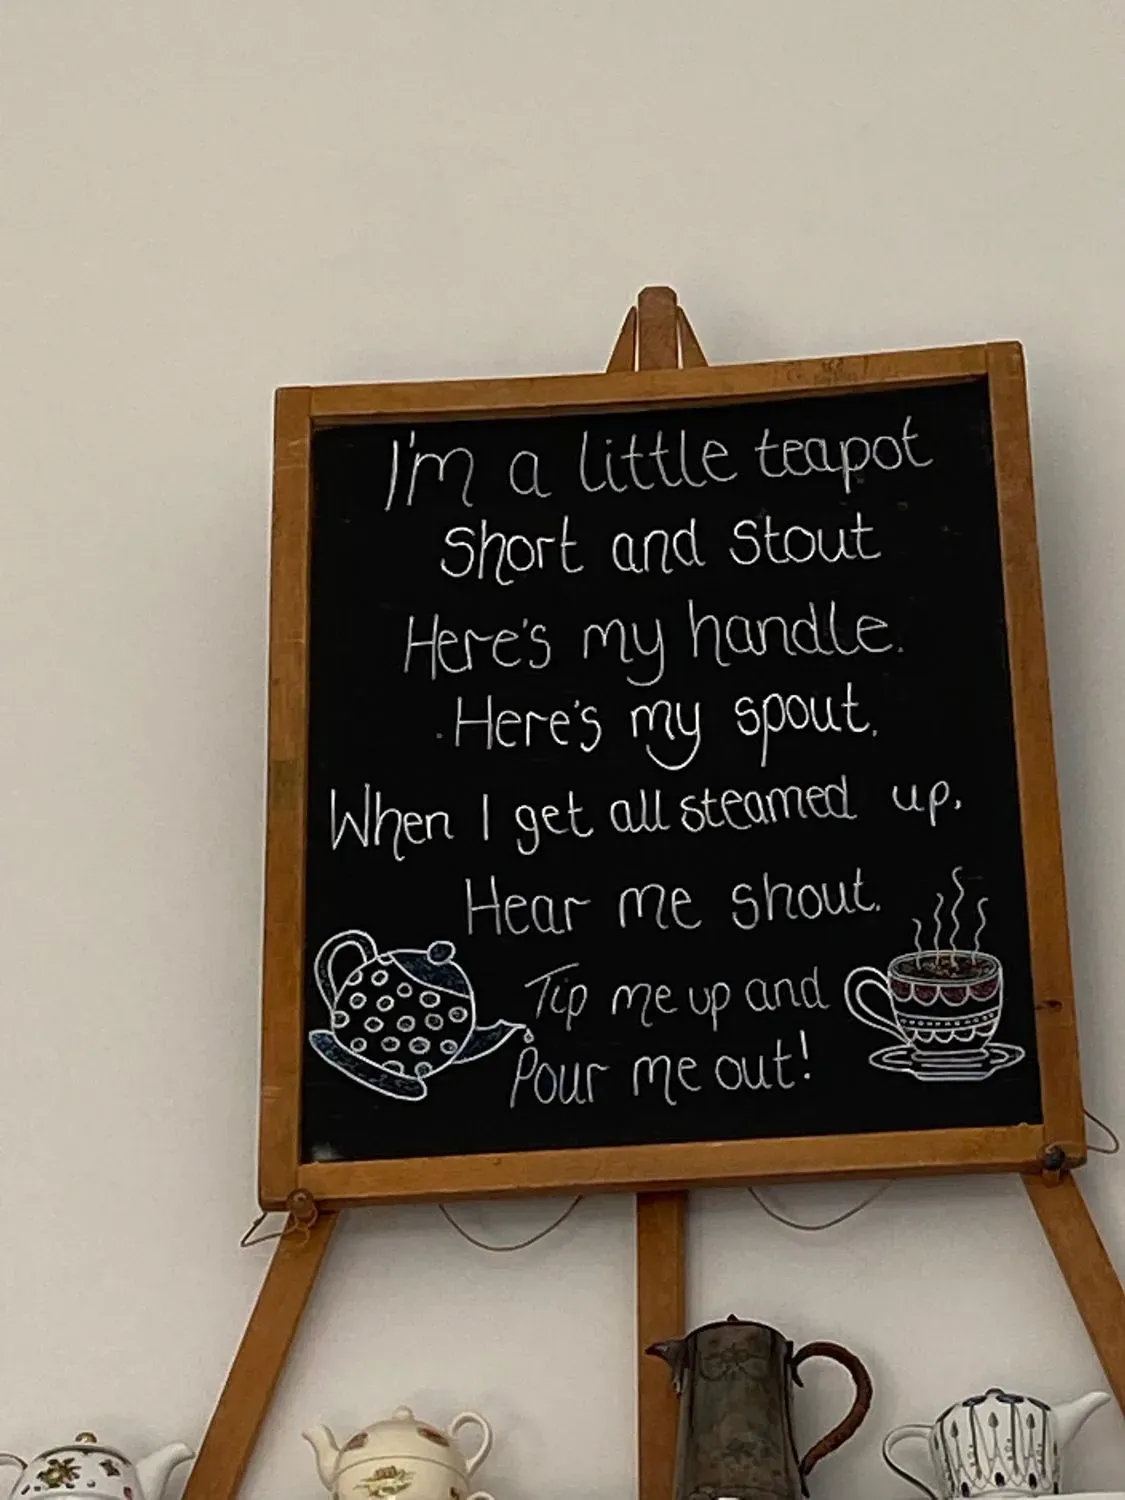 I'm a little teapot
Short and Stout
Here's my handle.
Here's my spout.
When I get all steamed up.
Hear me shout.
Tip me up and
Pour me out!